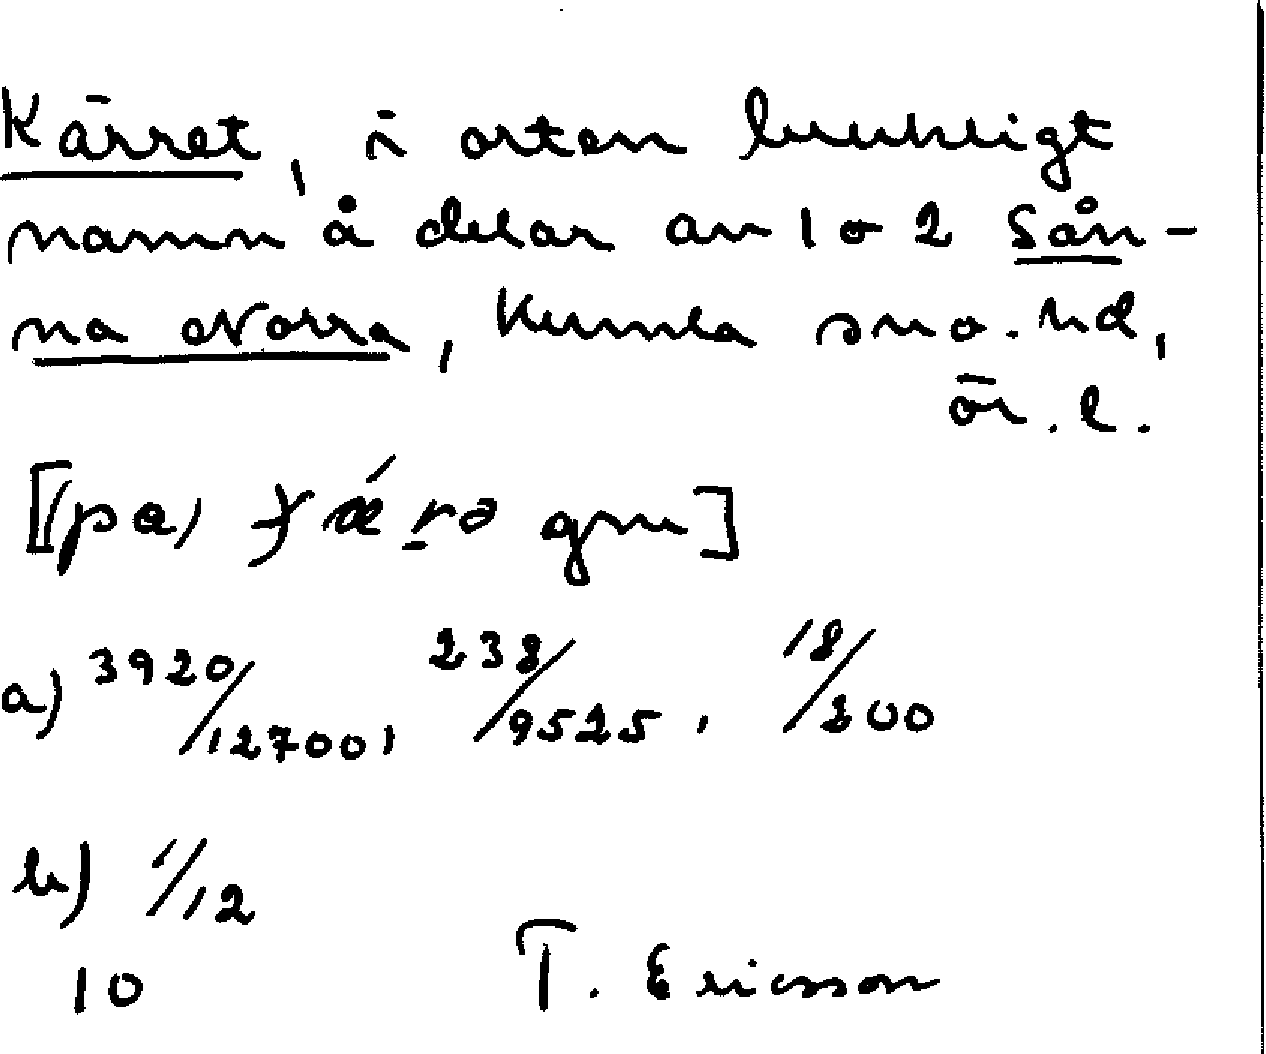 Kärret, i orten brukligt
namn å delar av 1 o 2 Sån-
na Norra, Kumla sn o. hd,
ör. l.
[(pa) ɟǽrə gnu]
a) 3920/12700, 238/9525, 18/200
b) 1/12
10 T. Ericsson